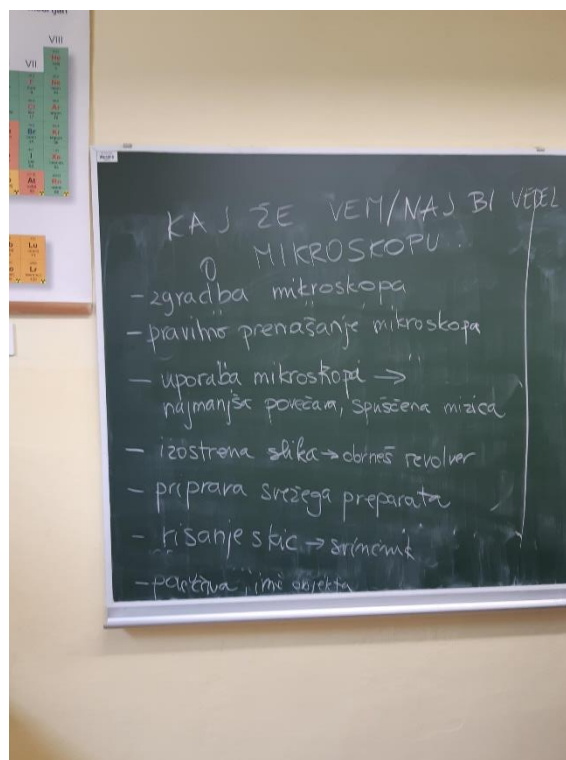 VII
VIII
Br
I
At
Kr
Lu
Lr
KAJ ŽE VEM/NAJ BI VEDEL
O MIKROSKOPU
- zgradba mikroskopa
- pravilno prenašanje mikroskopa
- uporaba mikroskopa →
najmanjša povečava, spuščena mizica
- izostrena slika → obrneš revolver
- priprava svežega preparata
- risanje skic → svinčnik
- povečava, ime objekta